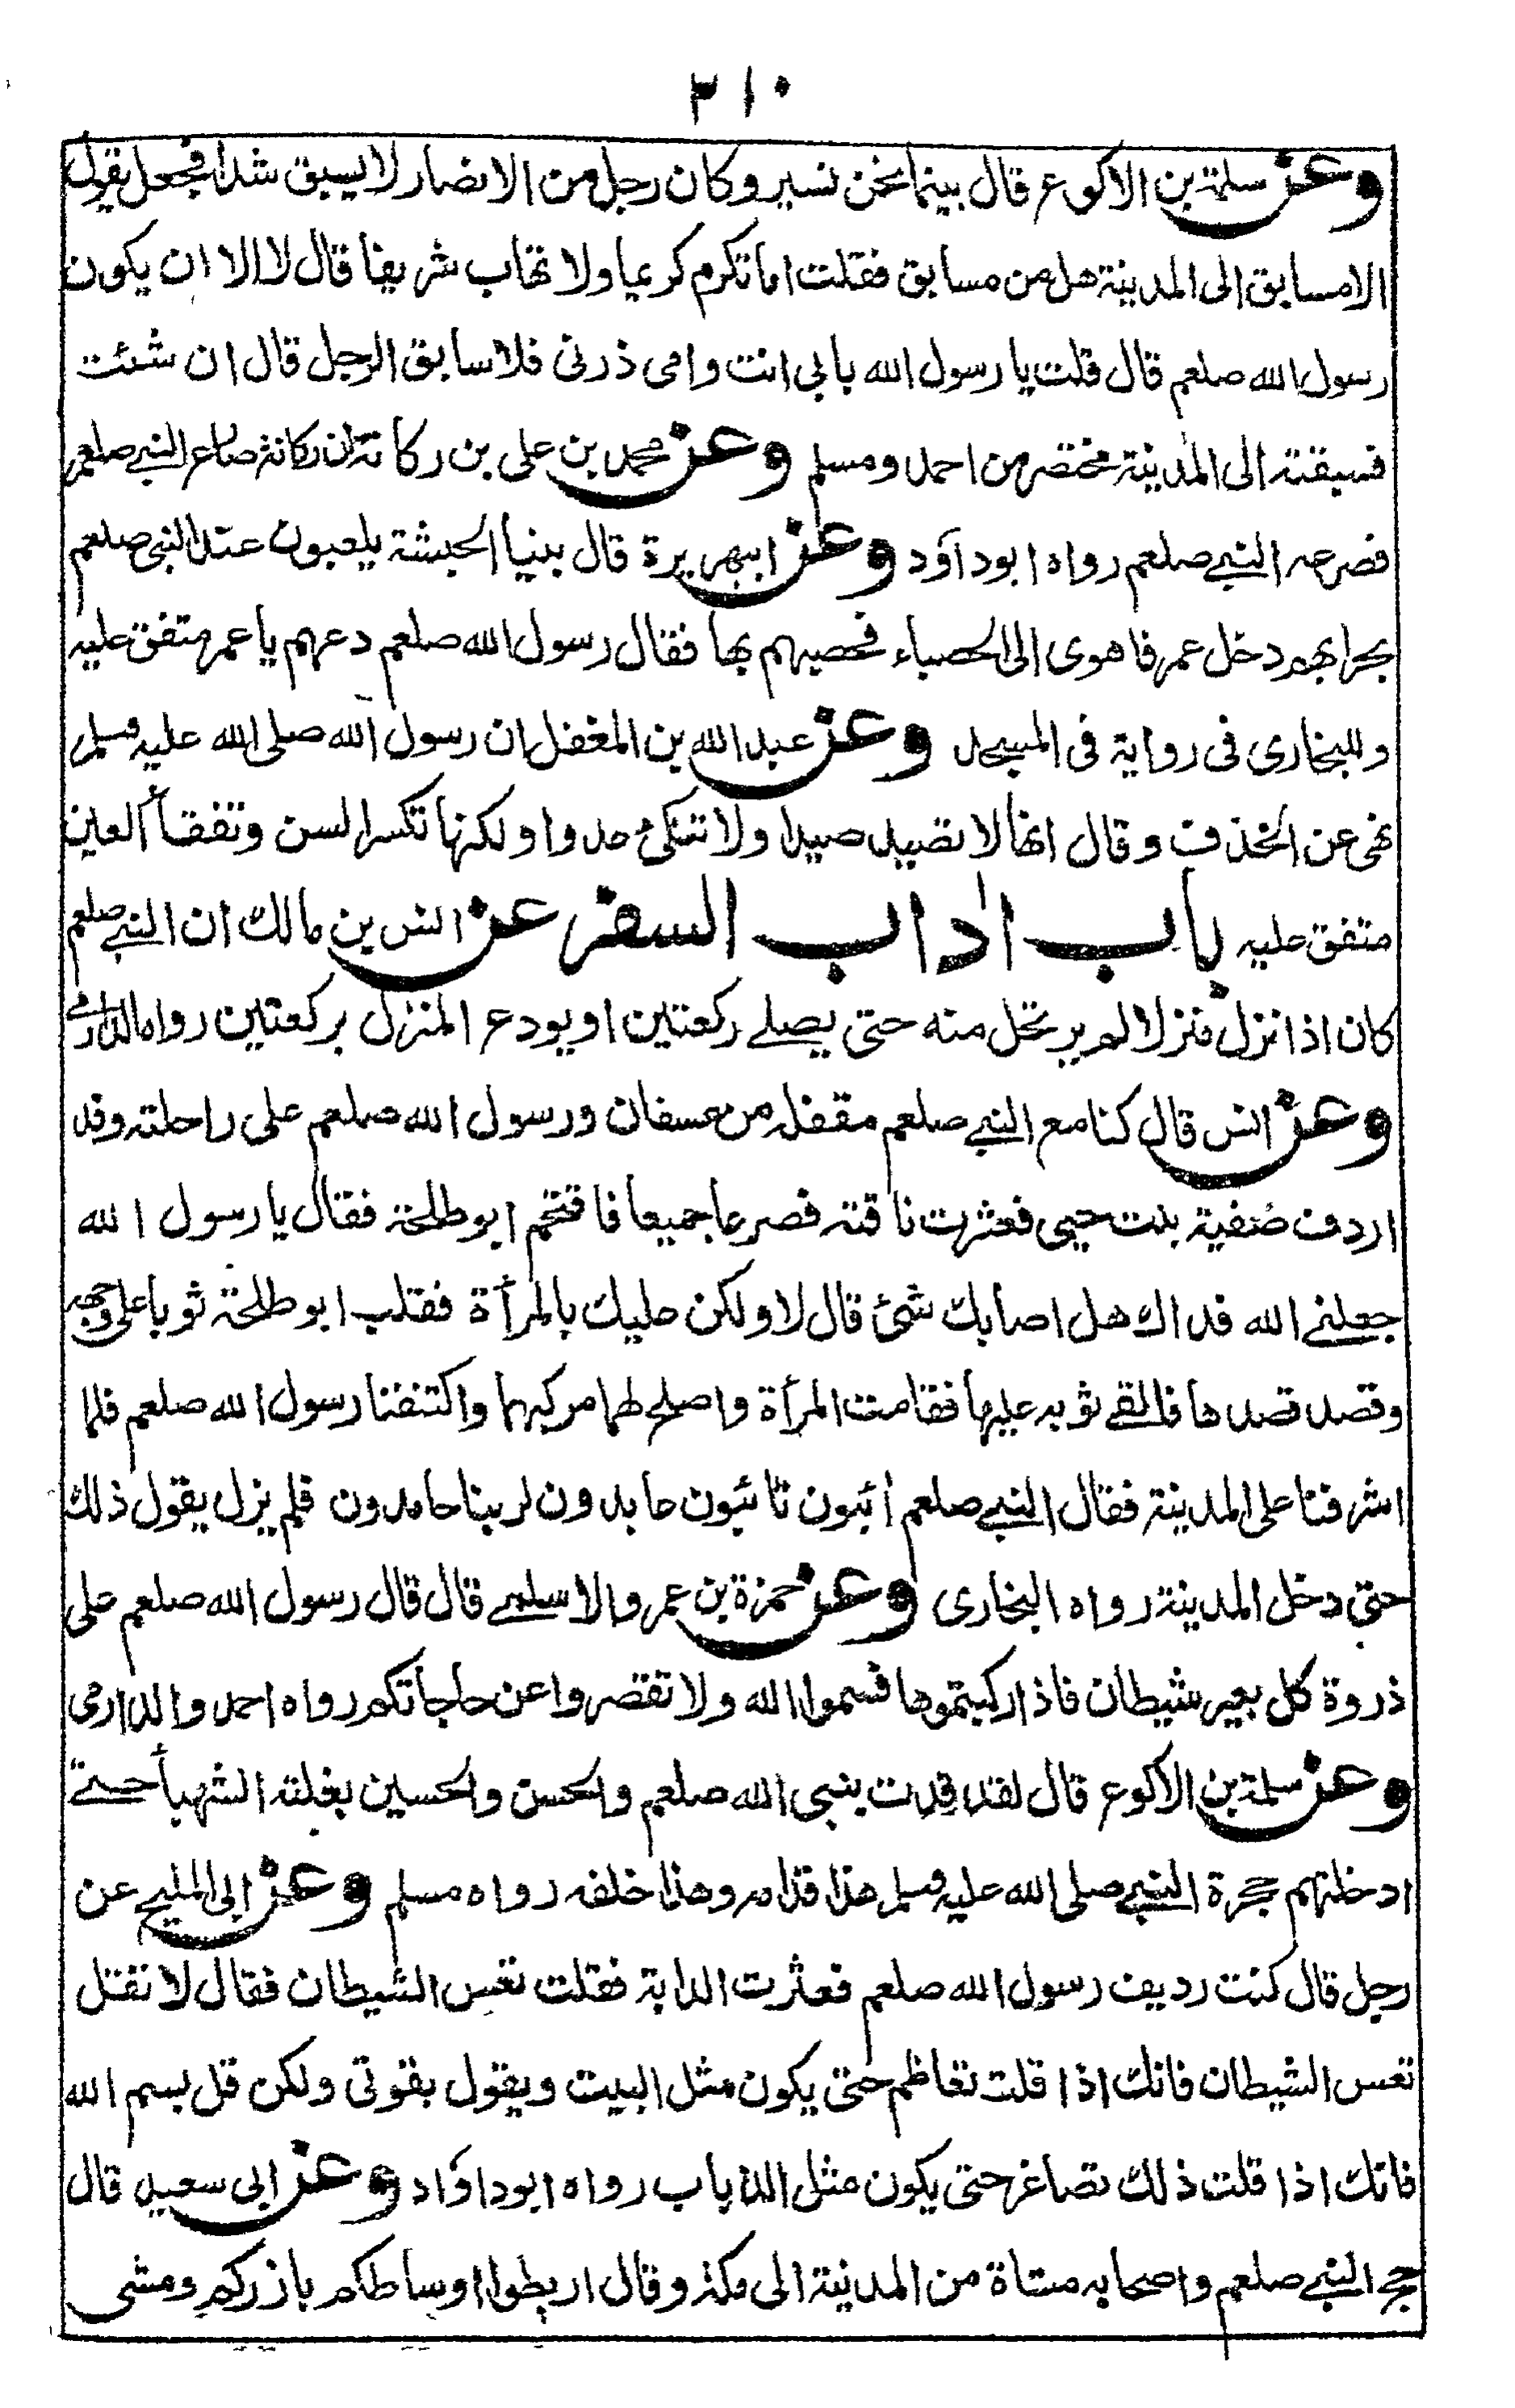 ٢١٠
وعن سلمة بن الاكوع قال بينما نحن نسير وكان رجل من الانصار لا يسبق شدا فجعل يقول
الا مسابق الى المدينة هل من مسابق فقلت اما تكرم كريما ولا تهاب شريفا قال لا الا ان يكون
رسول الله صلعم قال قلت يا رسول الله بابى انت وامى ذرنى فلاسابق الرجل قال ان شئت
فسبقته الى المدينة مختصر من احمد ومسلم وعن محمد بن على بن ركانة ان ركانة صارع النبى صلعم
فصرعه النبى صلعم رواه ابوداود وعن ابيهريرة قال بينا الحبشة يلعبون عند النبى صلعم
بحرابهم دخل عمر فاهوى الى الحصباء فحصبهم بها فقال رسول الله صلعم دعهم يا عمر متفق عليه
وللبخارى فى رواية فى المسجد وعن عبد الله بن المغفل ان رسول الله صلى الله عليه وسلم
نهى عن الخذف وقال انها لا تصيد صيدا ولا تنكئ عدوا ولكنها تكسر السن وتفقأ العين
متفق عليه باب اداب السفر عن انس بن مالك ان النبى صلعم
كان اذا نزل منزلا لم يرتحل منه حتى يصلے ركعتين او يودع المنزل بركعتين رواه الدارمى
وعن انس قال كنا مع النبى صلعم مقفله من عسفان ورسول الله صلعم على راحلته وقد
اردف صفية بنت حيى فعثرت ناقته فصرعا جميعا فاقتحم ابو طلحة فقال يا رسول الله
جعلنے الله فداك هل اصابك شئ قال لا ولكن عليك بالمرأة فقلب ابو طلحة ثوبا على وجهه
وقصد قصدها فالقے ثوبه عليها فقامت المرأة واصلح لهما مركبهما واكتنفنا رسول الله صلعم فلما
اشرفنا على المدينة فقال النبى صلعم ائبون تائبون عابدون لربنا حامدون فلم يزل يقول ذلك
حتى دخل المدينة رواه البخارى وعن حمزة بن عمرو الاسلمے قال قال رسول الله صلعم على
ذروة كل بعير شيطان فاذا ركبتموها فسموا الله ولا تقصروا عن حاجاتكم رواه احمد والدارمى
وعن سلمة بن الاكوع قال لقد قدت بنبى الله صلعم والحسن والحسين بغلته الشهبأ حتے
ادخلتهم حجرة النبى صلى الله عليه وسلم هذا قدامه وهذا خلفه رواه مسلم وعن ابى المليح عن
رجل قال كنت رديف رسول الله صلعم فعثرت الدابة فقلت تعس الشيطان فقال لا تقل
تعس الشيطان فانك اذا قلت تعاظم حتى يكون مثل البيت ويقول بقوتى ولكن قل بسم الله
فانك اذا قلت ذلك تصاغر حتى يكون مثل الذباب رواه ابوداود وعن ابى سعيد قال
حج النبى صلعم واصحابه مشاة من المدينة الى مكة وقال اربطوا اوساطكم بازركم ومشى